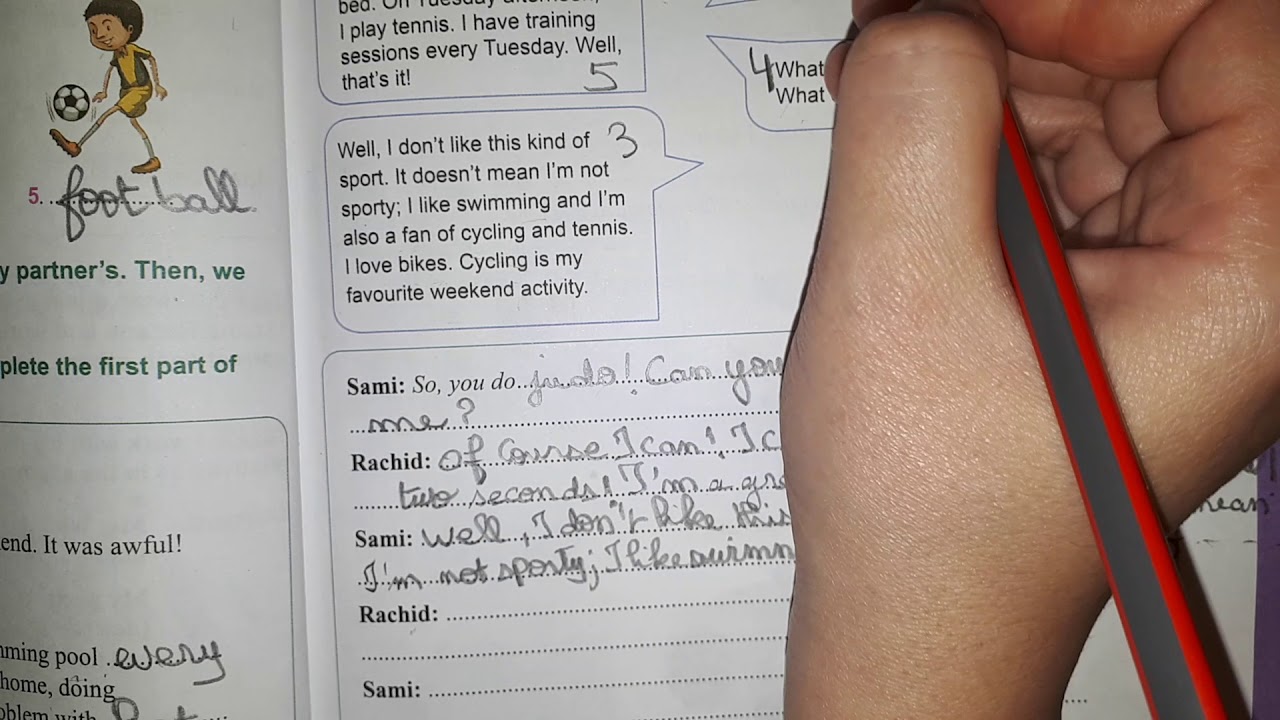 5. football
y partner's. Then, we
plete the first part of
end. It was awful!
ming pool every
home, doing
oblem with
I play tennis. I have training
sessions every Tuesday. Well,
that's it!
5
4
What
What
Well, I don't like this kind of
3
sport. It doesn't mean I'm not
sporty; I like swimming and I'm
also a fan of cycling and tennis.
I love bikes. Cycling is my
favourite weekend activity.
Sami: So, you do judo! Can you
me?
Rachid: Of course I can! I c
two seconds! I'm a gre
Sami: Well, I don't like this
I'm not sporty; I like swimm
mean
Rachid:
Sami: